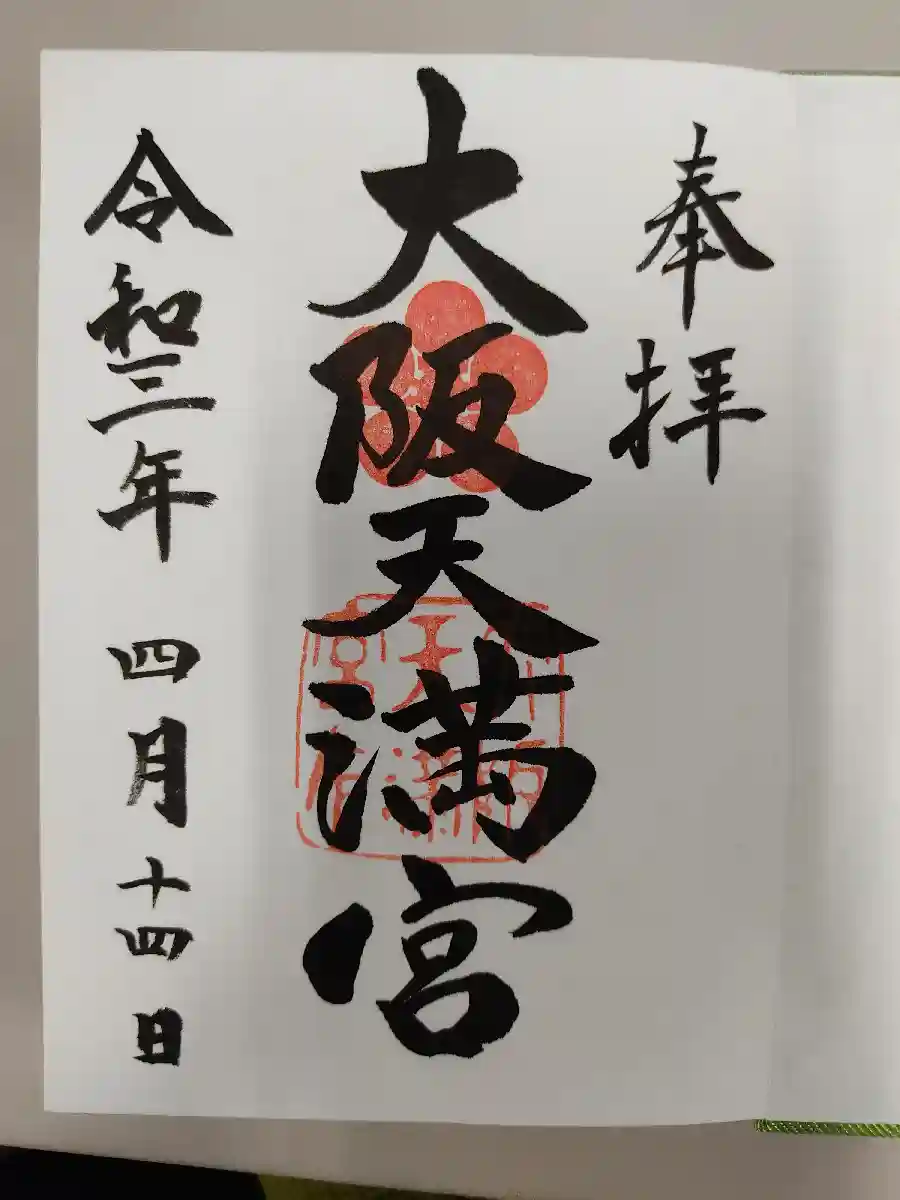 奉拝
大阪天満宮
令和三年四月十四日